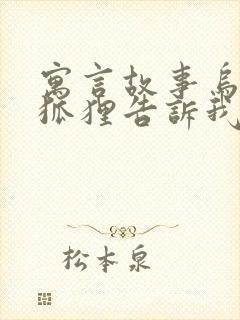 寓言故事烏
狐狸告訴我
松本泉